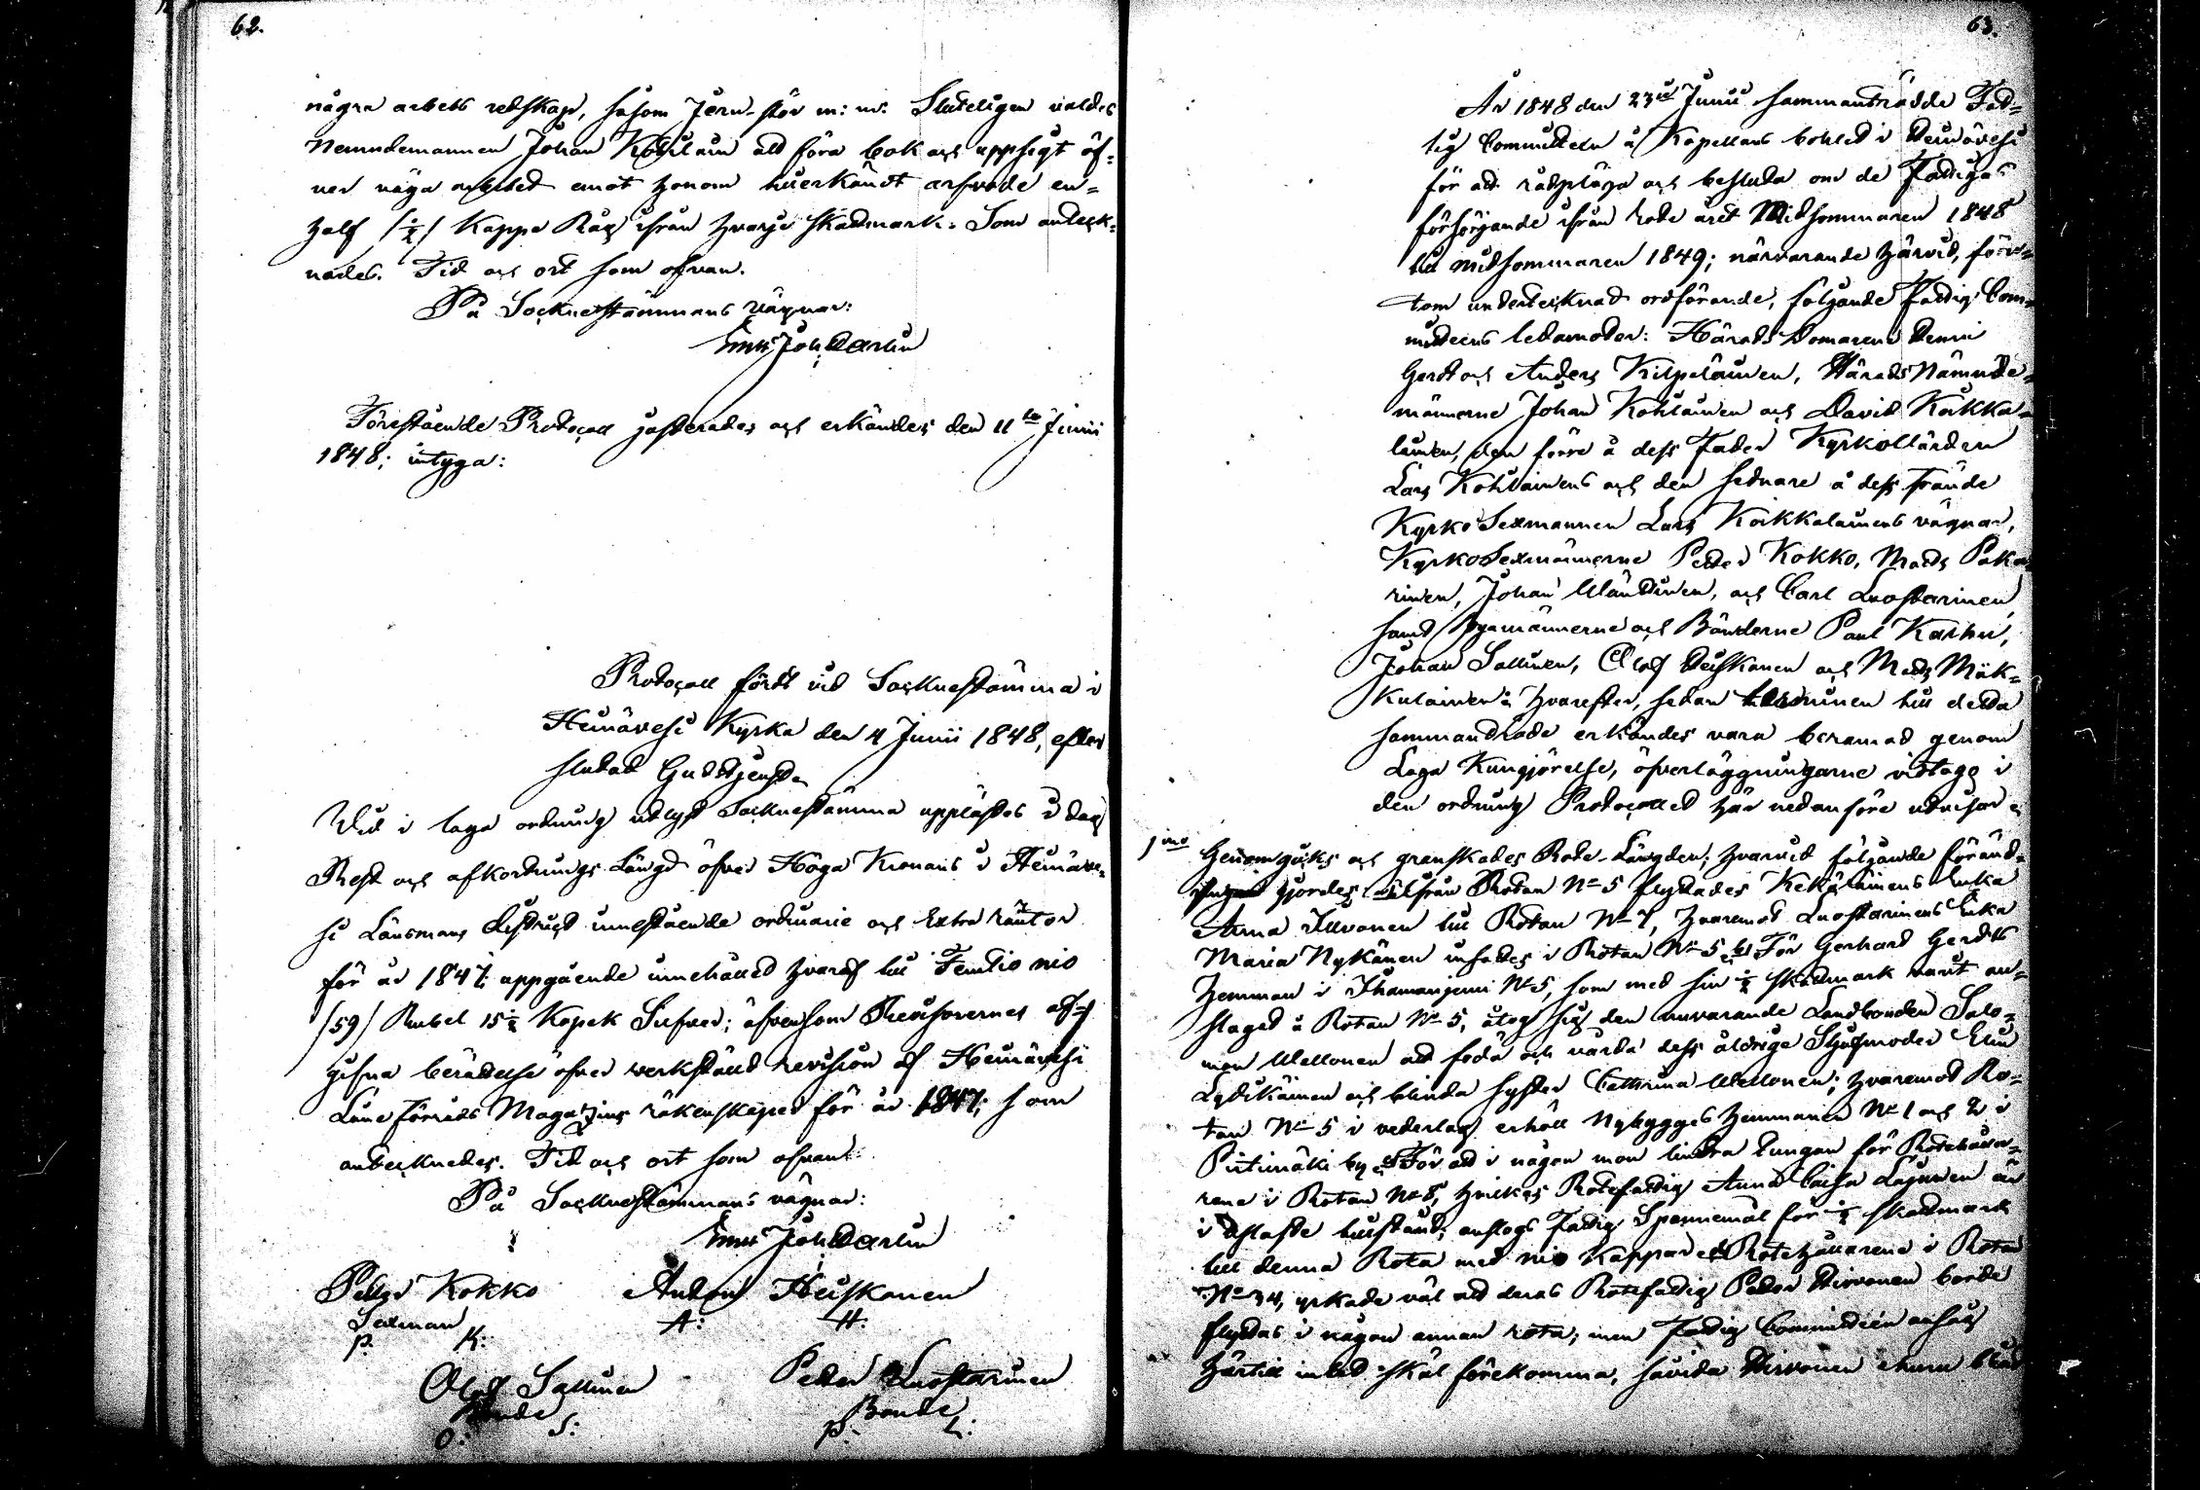 62.
några arbets redskap, såsom Jern-stör m: m. Sluteligen valdes
Nemndemannen Johan Kohilain att föra bok och uppsigt öf-
ver väga arbetet emot honom tillerkändt arfvode en-
half /½/ Kappe Råg ifrån hvarje skattmark. Som anteck-
nades. Tid och ort som ofvan.
På Socknestämmans vägnar:
Joh. Darlin
Förestående Protocoll justerades och erkändes den 11te Junii
1848; intyga:
Protocoll fördt vid Socknestämma i
Heinävesi Kyrka den 4 Junii 1848, efter
slutad Gudstjenst.
Wid i laga ordning utlyst Socknestämma upplästes i dag
Rest och afkortnings Längd öfver Höga Kronans i Heinäve-
si Länsmans District innestående ordinarie och Extra räntor
för år 1847. uppgående innehållet hvaraf till Femtio nio
/59/ Rubel 15½ Kopek Silfver; äfvensom Revisorernes af-
gifna berättelse öfver verkställd revision af Heinävesi
Låne Förråds Magazins räkenskaper för år 1847; som
antecknades. Tid och ort som ofvan.
På Socknestämmans vägnar:
Joh. Darlin
Petter Kokko Anders Heiskanen
Sexman A: H:
P. K:
Olof Sallinen Petter Luostarinen
Bonde Bonde
O: S: P. L:
63.
År 1848 den 23de Junii sammanträdde Fat-
tig Committeen å Kapellans bohled i Heinävesi
för att rådpläga och besluta om de Fattigas
försörjande ifrån rote året Midsommaren 1848
till midsommaren 1849; närvarande härvid, för-
utom undertecknad ordförande, följande Fattig Com-
mitteens ledamöter: Härads Domarene Henric
Gerdt och Anders Kilpeläinen, Härads Nämnde-
männerne Johan Kohlainen och David Koikka-
lainen, den förre å dess Fader Kyrkovärden
Lars Kohlainens och den sednare å dess frände
Kyrko Sexmannen Lars Koikkalainens vägnar,
Kyrko Sexmännerne Petter Kokko, Mads Paka-
rinen, Johan Wäntinen, och Carl Luostarinen,
samt Byamännerne och Bönderne Paul Karhu,
Johan Sallinen, Olof Heiskanen och Mads Mäk-
kulainen: hvarefter, sedan terminen till detta
sammanträde erkändes vara beramad genom
Laga Kungjörelse, öfverläggningarne vidtogo i
den ordning Protocollet här nedanföre utvisar:
1mo Genomgicks och granskades Rote-Längden; hvarvid följande föränd-
gjordes: ifrån Rotan No 5 flyttades Kekäläinens Enka
Anna Illvonen till Rotan No 7, hvaremot Luostarinens Enka
Maria Nykänen insattes i Rotan No 5. För Gerhard Gerdts
hemman i Ihamaniemi No 5, som med sin ½ skattmark varit an-
slaget å Rotan No 5, åtog sig den nuvarande Landbonden Salo-
mon Wellonen att föda och vårda dess åldrige Styfmoder Elin
Lydikäinen och blinda syster Cathrina Wellonen; hvaremot Ro-
tan No 5 i vederlag erhöll Nybygges hemmanen No 1 och 2 i
Pirtimäki by. För att i någon mon lindra tungan för Rotehålla-
rene i Rotan No 8, hvilkas Rotefattig Anna Caisa Lajunen är
i uslaste tillstånd, anslogs Fattig Spannemål för ½ skattmark
till denna Rota med nio Kappar. Rotehållarene i Rotan
No 34, yrkade väl att deras Rotefattig Petter Hirvonen borde
flyttas i någon annan rota; men Fattig Committéen ansåg
härtill intet skäl förekomma, såvida Hirvonen ehuru blind